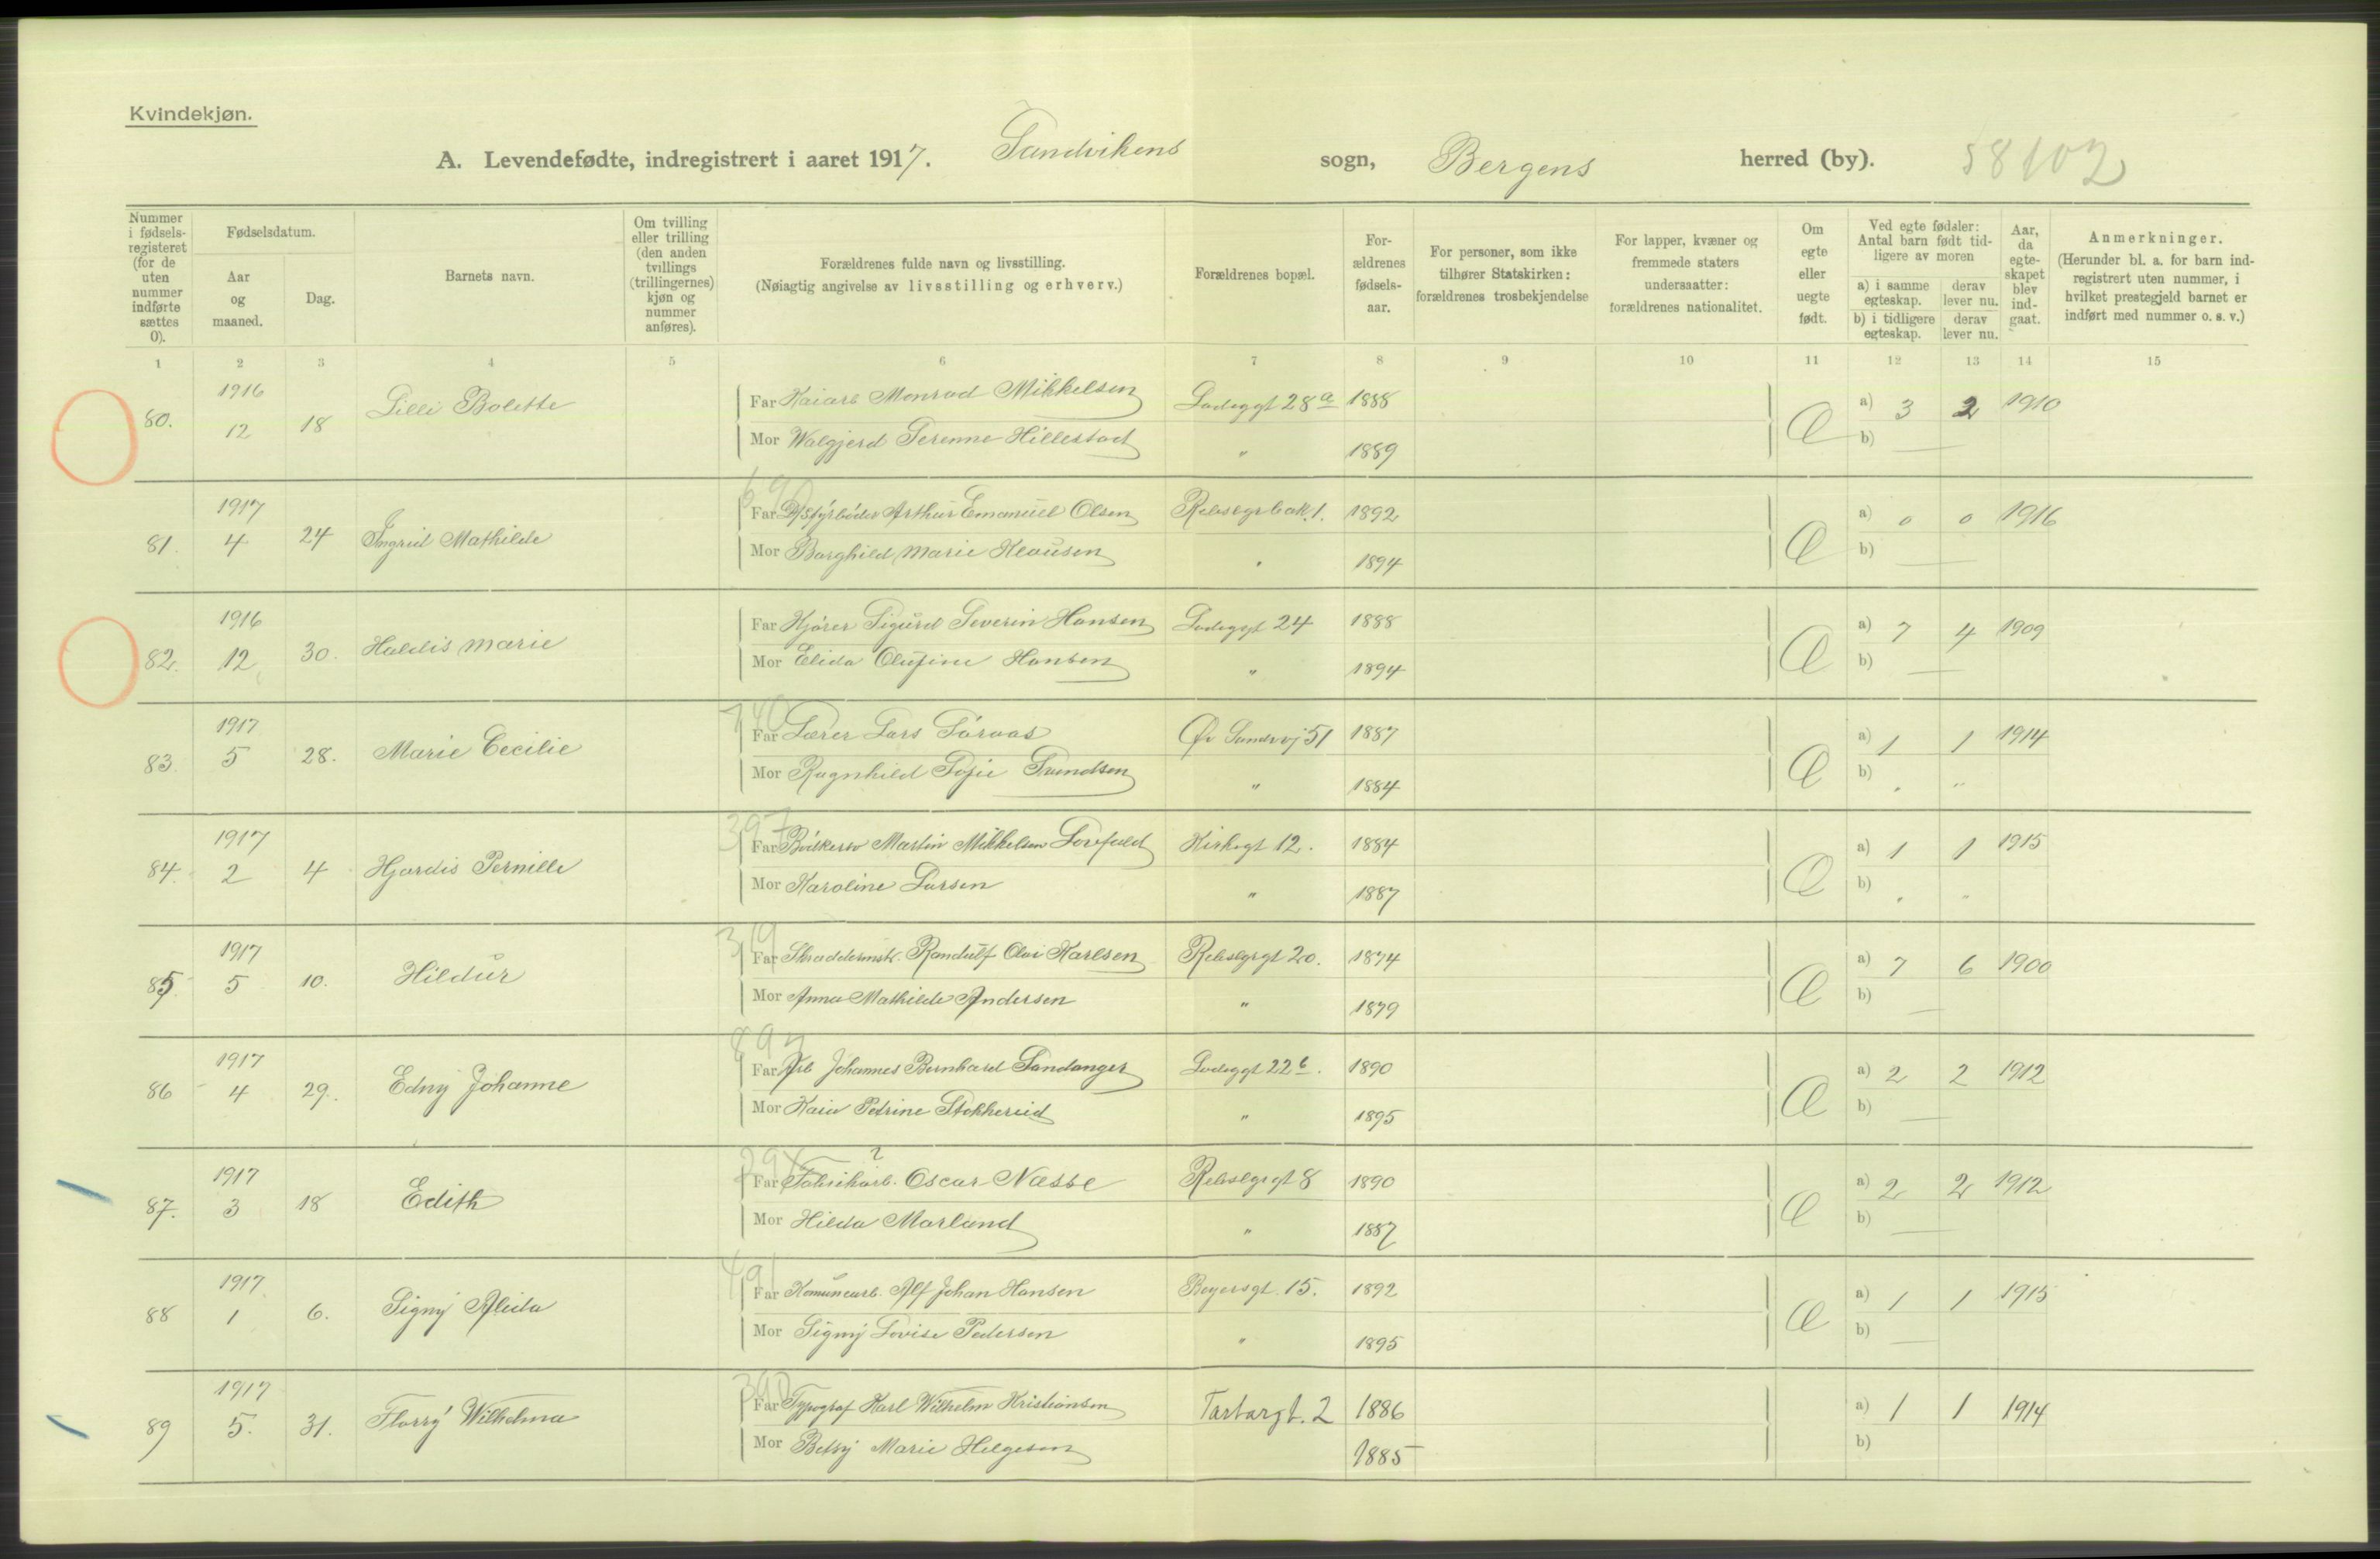 Kvindekjøn.
A. Levendefødte, indregistrert i aaret 1917. Sandvikens sogn, Bergens herred (by). 58102
Nummer i fødsels-registeret (for de uten nummer indførte sættes 0).
Fødselsdatum.
Aar og maaned.
Dag.
Barnets navn.
Om tvilling eller trilling (den anden tvillings (trillingernes) kjøn og nummer anføres).
Forældrenes fulde navn og livsstilling.
(Nøiagtig angivelse av livsstilling og erhverv.)
Forældrenes bopæl.
For-ældrenes fødsels-aar.
For personer, som ikke tilhører Statskirken: forældrenes trosbekjendelse
For lapper, kvæner og fremmede staters undersaatter: forældrenes nationalitet.
Om egte eller uegte født.
Ved egte fødsler: Antal barn født tid-ligere av moren
a) i samme egteskap. derav lever nu.
b) i tidligere egteskap. derav lever nu.
Aar, da egte-skapet blev ind-gaat.
Anmerkninger.
(Herunder bl. a. for barn ind-registrert uten nummer, i hvilket prestegjeld barnet er indført med nummer o. s. v.)
1 2 3 4 5 6 7 8 9 10 11 12 13 14 15
80. 1916 12 18 Lilli Bolette
Far Kaiarb Monrad Mikkelsen Ladeggt 28a 1888 Æ a) 3 2 1910
Mor Walgjerd Serenne Hillestad " 1889 b)
81. 1917 4 24 Ingrid Mathilde
Far Arthur Emanuel Olsen 1892 Æ a) 0 0 1916
Mor Borghild Marie Klausen " 1894 b)
82. 1916 12 30. Haldis Marie
Far Kjører Sigurd Severin Hansen Ladeggt 24 1888 Æ a) 7 4 1909
Mor Elida Olufine Hansen " 1894 b)
83. 1917 5 28. Marie Cecilie
Far Lærer Lars Søraas Øv Sandvj 51 1887 Æ a) 1 1 1914
Mor Ragnhild Sofie " 1884 b) " "
84. 1917 2 4 Hjørdis Pernille
Far Martin Mikkelsen Kirkegt 12. 1884 Æ a) 1 1 1915
Mor Karoline Larsen " 1887 b) " "
85. 1917 5 10. Hildur
Far Skraddermstr. Randulf Olai Karlsen Rebslgrgt 20. 1874 Æ a) 7 6 1900
Mor Anna Mathilde Andersen " 1879 b)
86 1917 4 29. Edny Johanne
Far Arb Johannes Bernhard Sandanger Ladeggt 22b. 1890 Æ a) 2 2 1912
Mor Kaia Petrine Stokkereid " 1895 b)
87. 1917 3 18 Edith
Far Fabrikarb. Oscar Næsse Rebslgrgt 8 1890 Æ a) 2 2 1912
Mor Hilda Marland " 1887 b)
88 1917 1 6. Signy Alida
Far Komunearb. Alf Johan Hansen Beyersgt. 15. 1892 Æ a) 1 1 1915
Mor Signy Lovise Pedersen " 1895 b)
89 1917 5. 31. Florry Wilhelma
Far Typograf Karl Wilhelm Kristiansen Tartargt. 2 1886 a) 1 1 1914
Mor Betsy Marie Helgesen 1885 b)